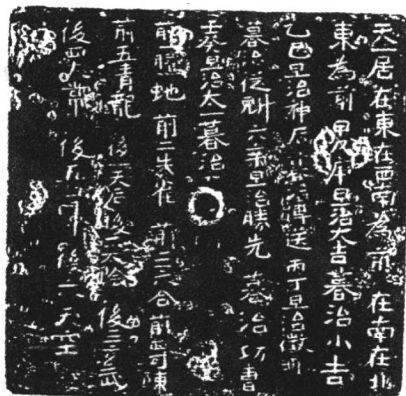 天一居在東在西南為前 在南在北
東為前 甲戊庚旦治大吉暮治小吉
乙 旦治神后 暮治傳送 丙丁旦治徵明
暮治從魁 六辛旦治勝先 暮治功曹
旦治太一暮治
前一騰蛇 前二朱雀 前三六合 前四 陳
前五青龍 後一天后後二 後三玄武
後四 常 後五 後六天空